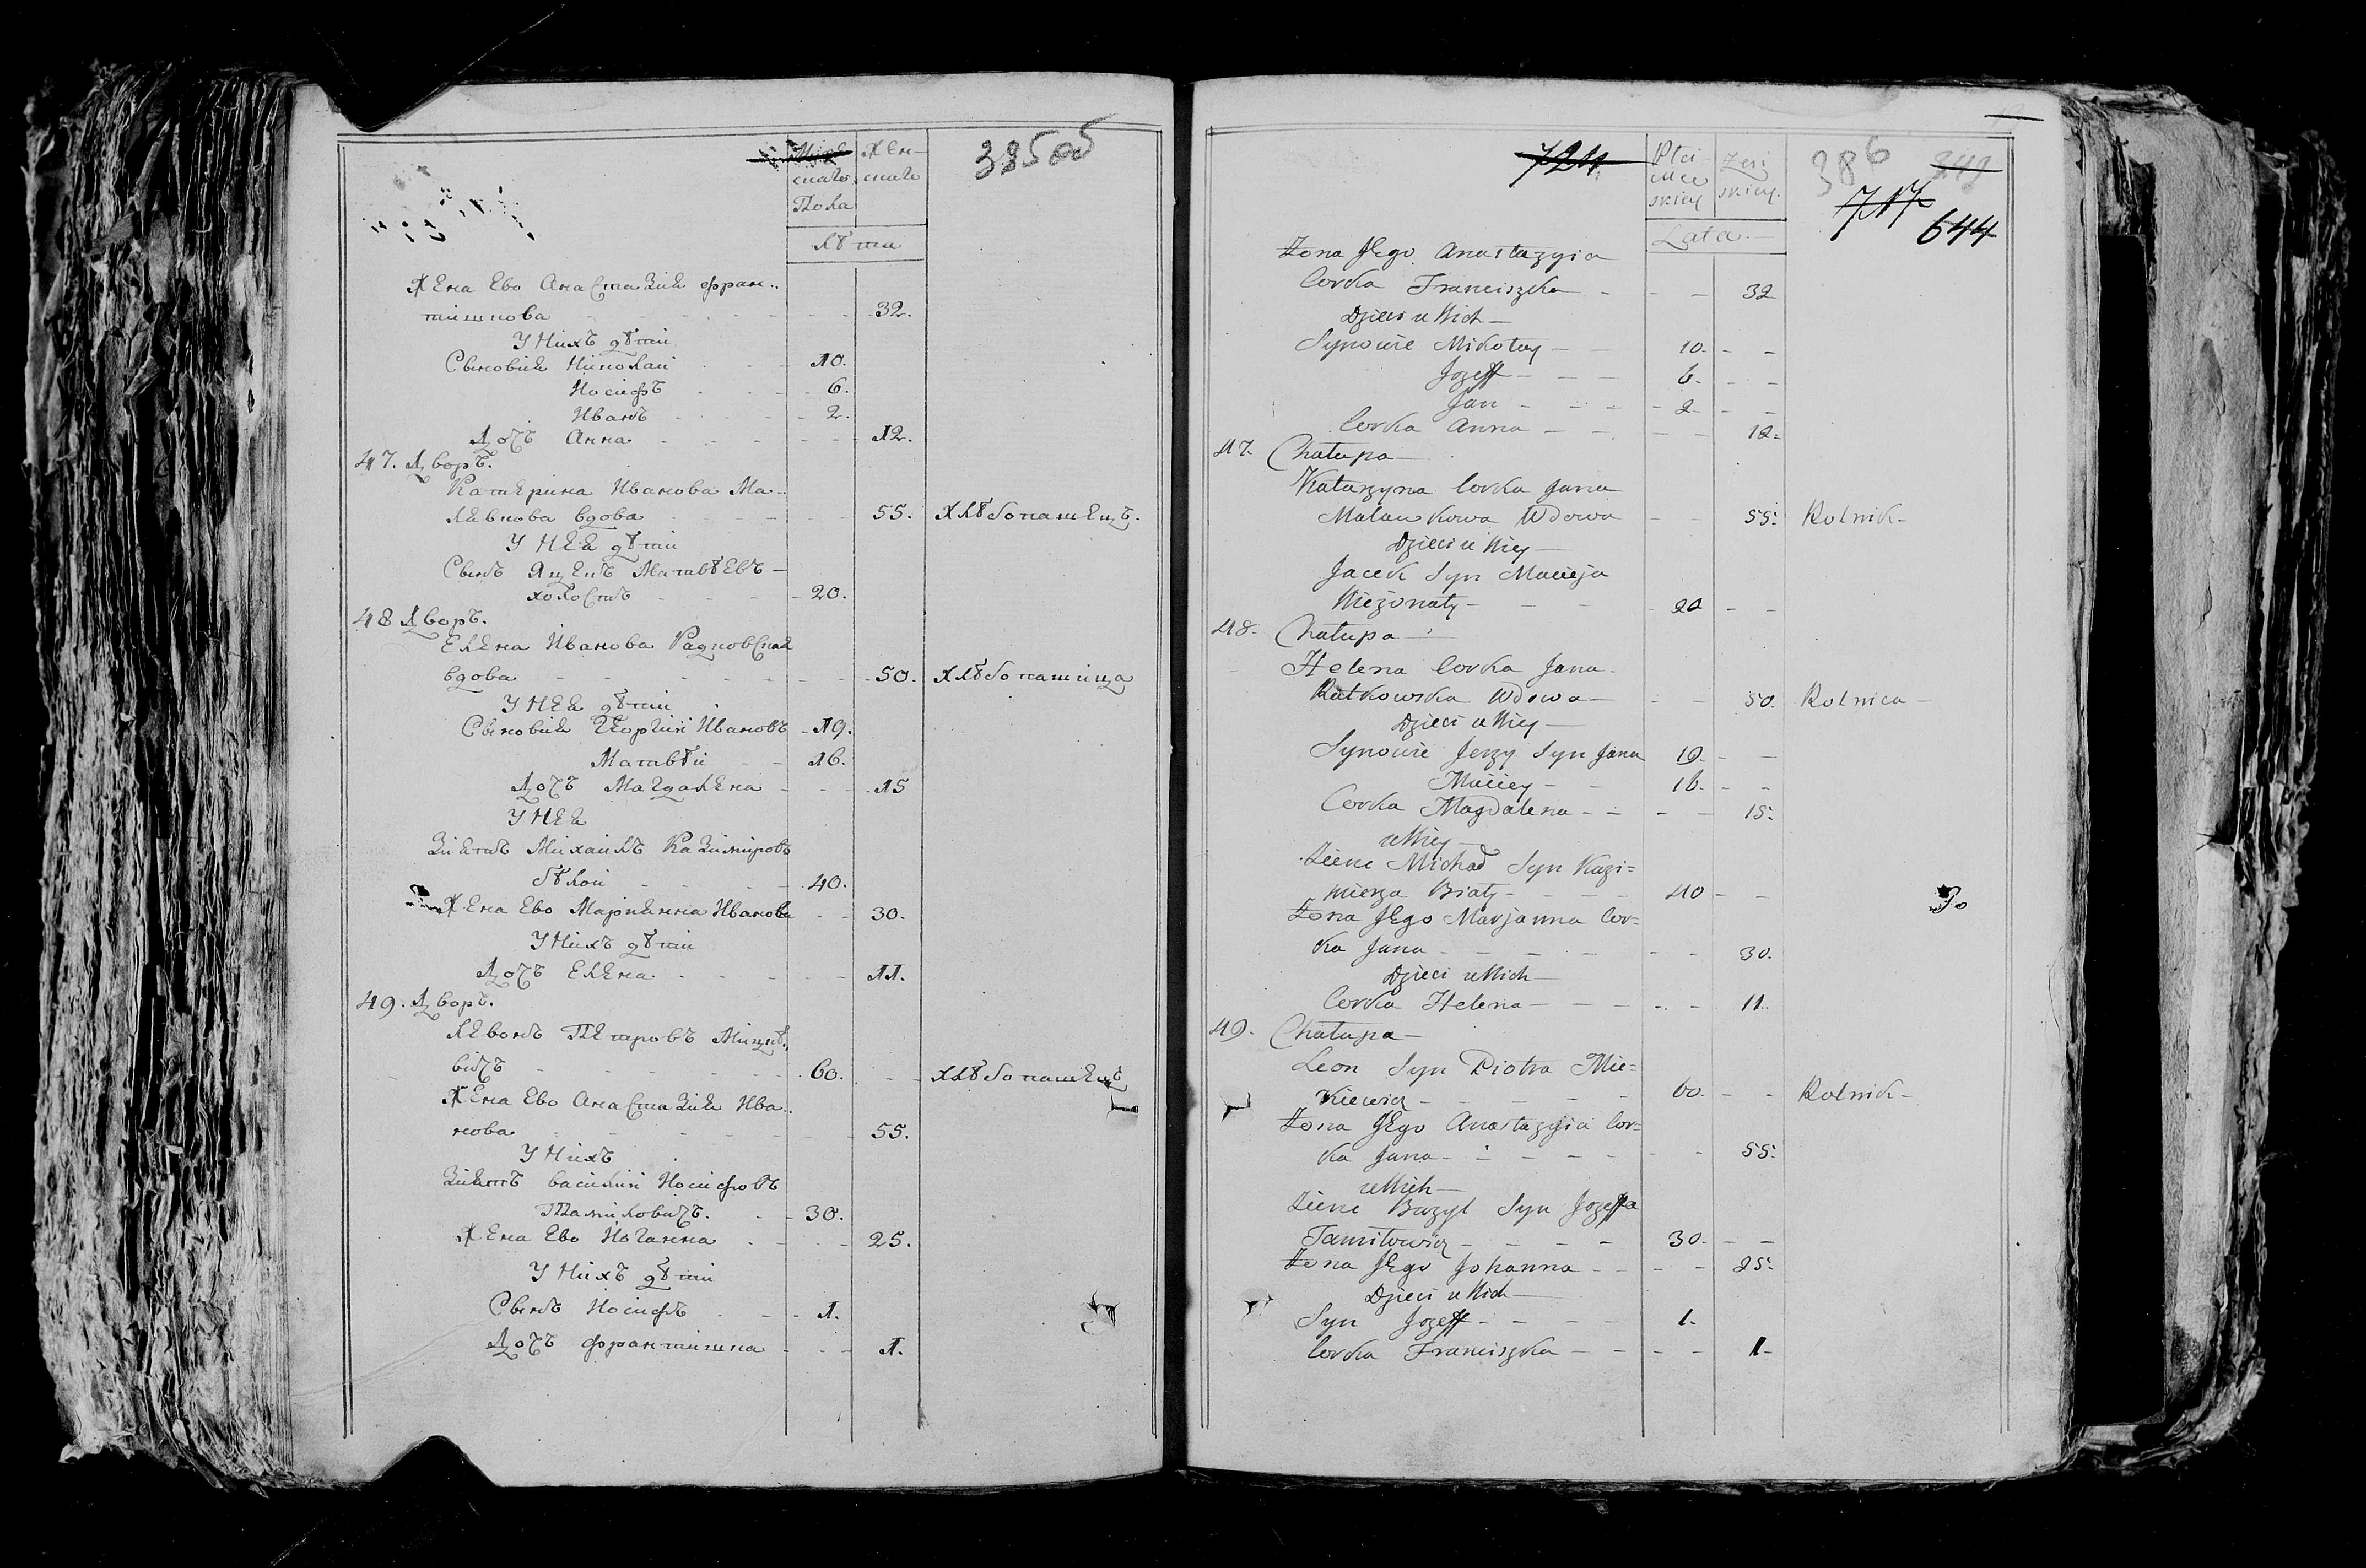 Женс-
каго
скаго
Пола
лѣта
385об
Жена Ево Анастазия Фран-
тишкова 32.
У Нихъ дѣти
Сыновия Николай 10.
Иосифъ 6.
Иванъ 2.
Дочь Анна 12.
47. Дворъ.
Катерина Иванова Ма-
лявкова вдова 55. Хлѣбопашецъ.
У Нея дѣти
Сынъ Яцекъ Матвѣевъ
холостъ 20.
48 Дворъ.
Елена Иванова Радковская
вдова 50. Хлѣбопашица
У Нея дѣти
Сыновия Георгий Ивановъ 19.
Матвѣй 16.
Дочь Магдалена 15
У Нея
Зиять Михаилъ Казимировъ
бѣлой 40.
Жена Ево Марианна Иванова 30.
У Нихъ дѣти
Дочь Елена 11.
49. Дворъ.
Левонъ Петровъ Мицке-
вичъ 60. Хлѣбопашецъ
Жена Ево Анастазия Ива-
нова 55.
У Нихъ
Зиять василий Иосифовъ
Тамиловичъ. 30.
Жена Ево Иоганна 25.
У Нихъ дѣти
Сынъ Иосифъ 1.
Дочь Франтишка 1.
724
Płci
Męz
skiey
Zeń
skiey.
Lata
386
349
717
644
Zona Jego Anastazyia
Corka Franciszka 32
Dzieci u Nich
Synowie Mikołay 10.
Jozeff 6.
Jan 2
Corka Anna 12.
47. Chałupa
Katarzyna Corka Jana
Malawkowa Wdowa 55. Rolnik
Dzieci u Niey
Jacek Syn Macieja
Nieżonaty 20
48. Chałupa
Helena Corka Jana
Ratkowska Wdowa 50. Rolnica
Dzieci u Niey
Synowie Jerzy Syn Jana 19.
Maciey 16.
Corka Magdalena 15.
u Niey
Zienc Michał Syn Kazi=
mierza Biały 40
Zona Jego Marjanna Cor=
ka Jana 30.
Dzieci u Nich
Corka Helena 11.
49. Chałupa
Leon Syn Piotra Mic=
kiewicz 60. Rolnik
Zona Jego Anastazyia Cor=
ka Jana 55.
u Nich
Zienc Bazyl Syn Jozeffa
Tamiłowicz 30.
Zona Jego Johanna 25.
Dzieci u Nich
Syn Jozeff 1.
Corka Franciszka 1